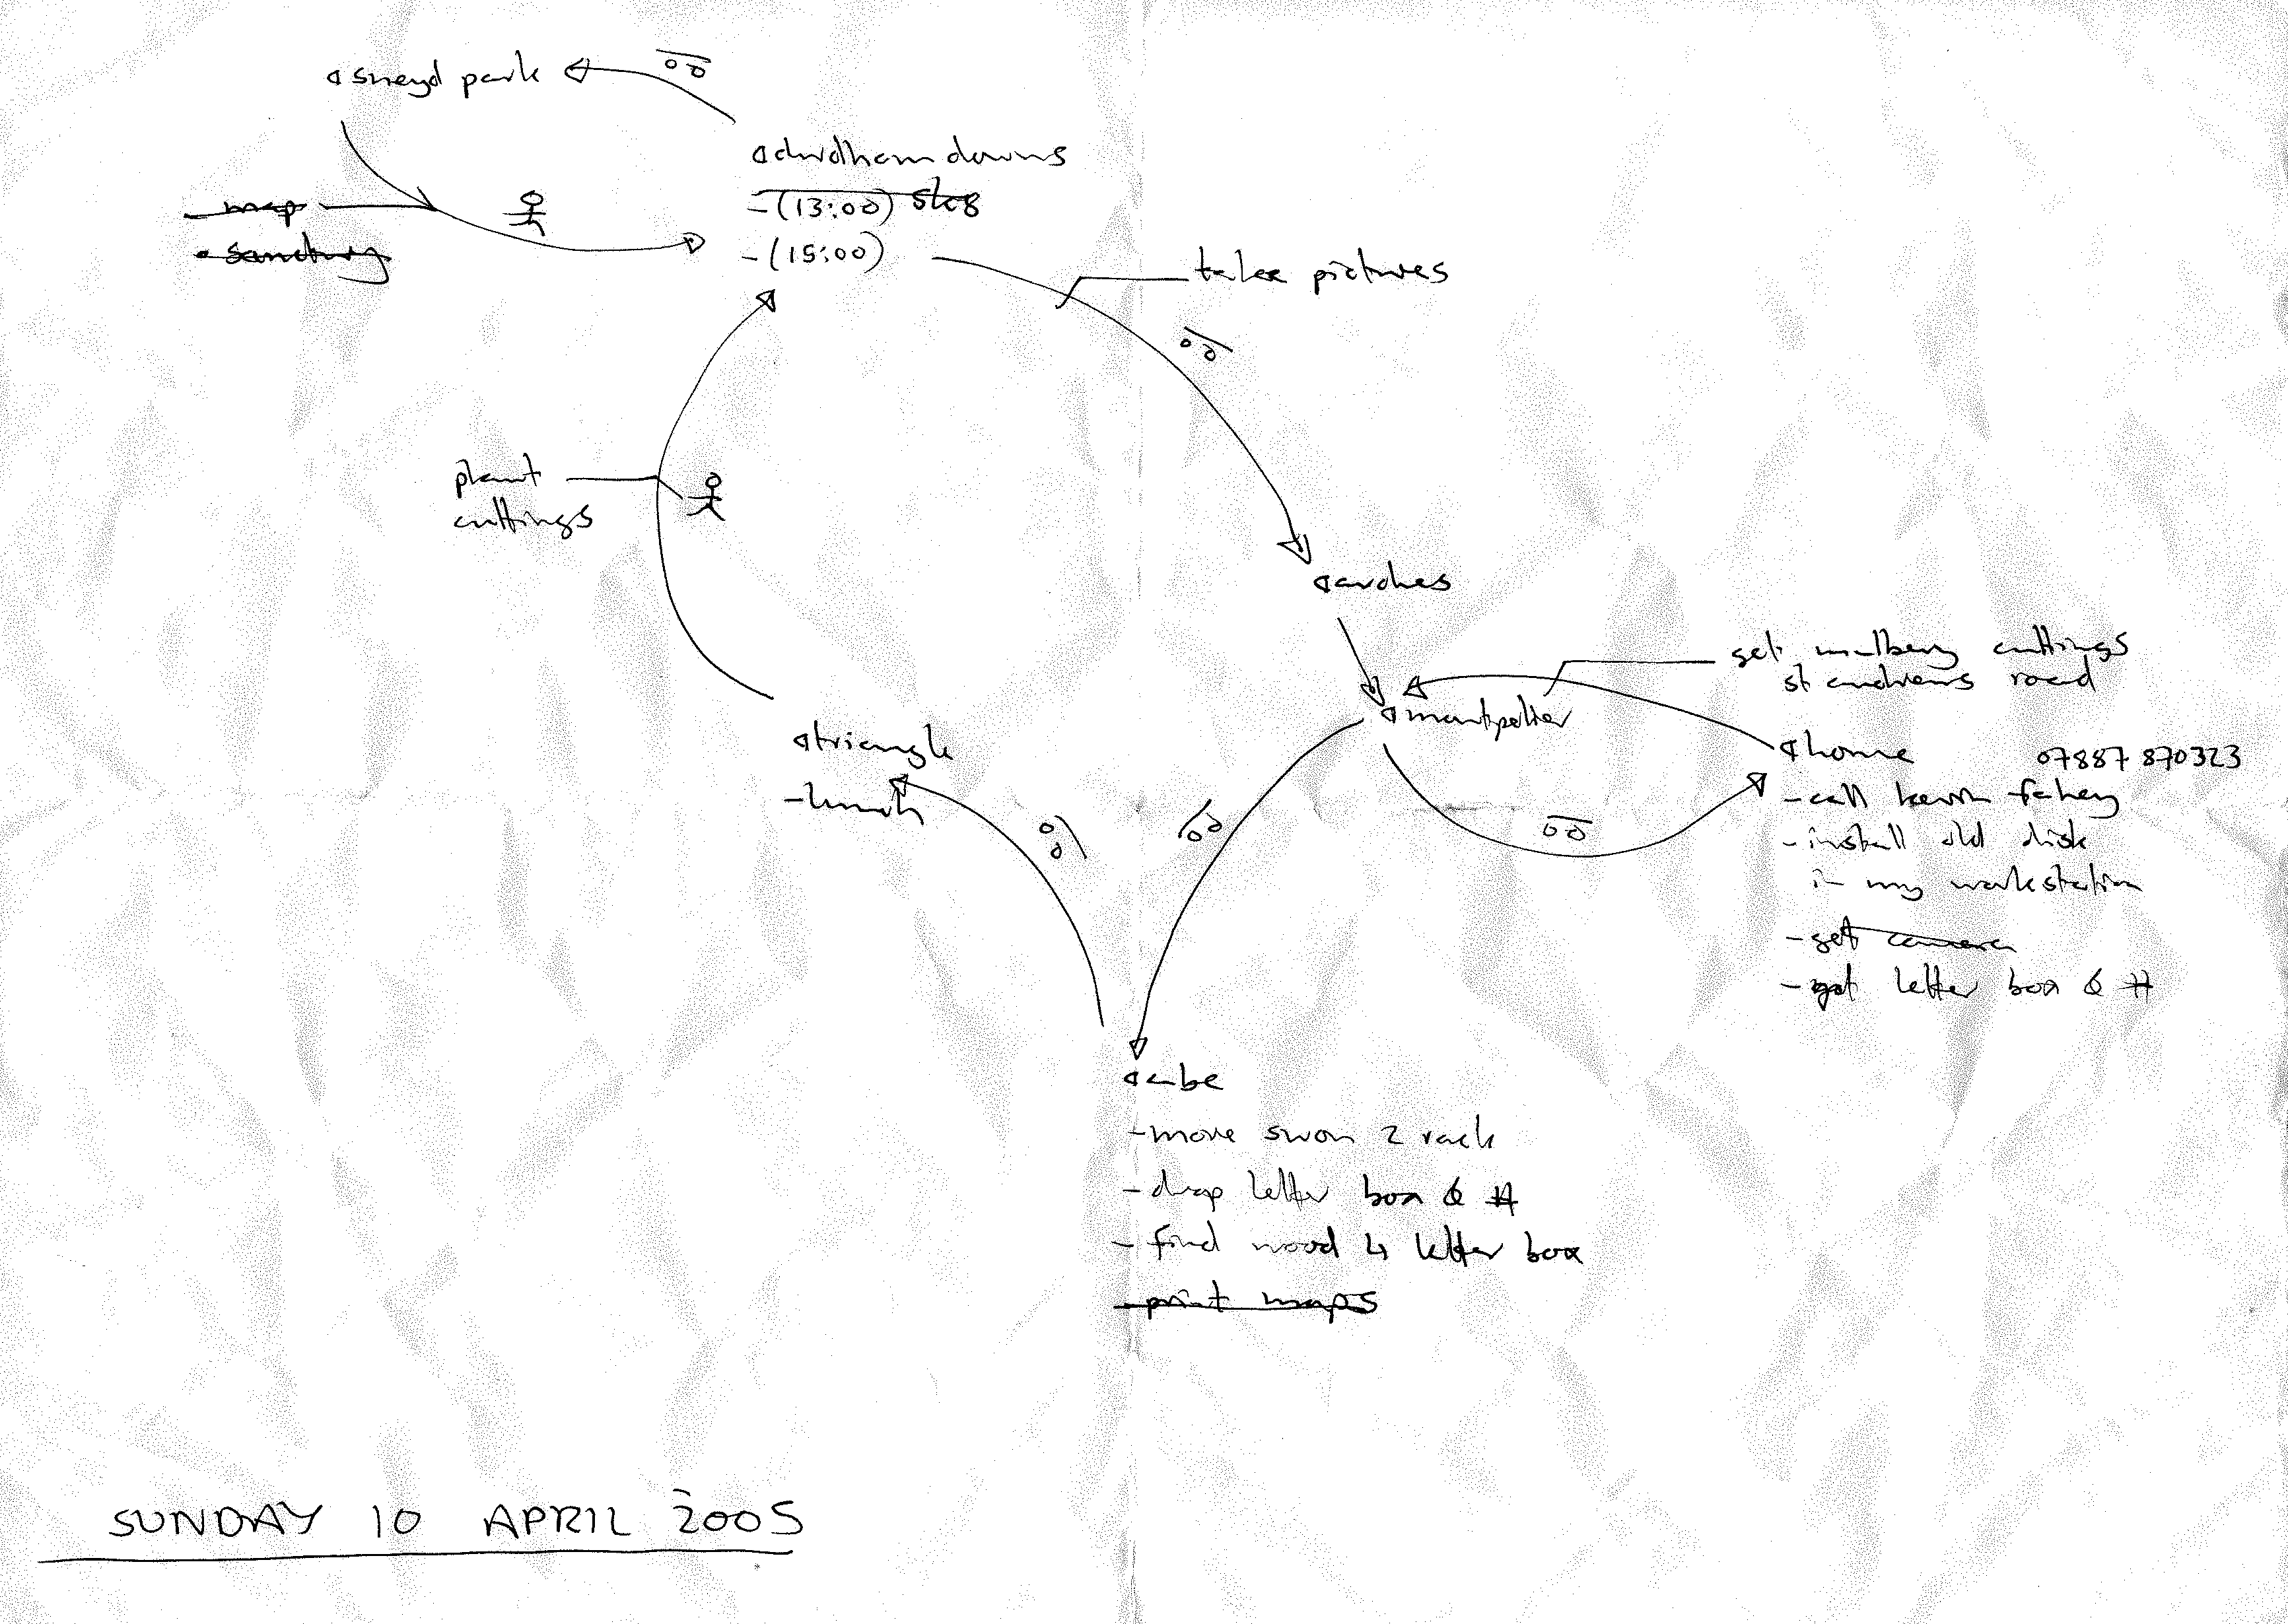 sneyd park
durdham downs
- map
- (13:00)
- sanctury
- (15:00)
take pictures
plant
cuttings
arches
get mulbery cuttings
st andrews road
montpelier
triangle
- lunch
home 07887 870323
- call kevin fahey
- install old disk
in my workstation
- get camera
- get letter box & #
cube
- move swan 2 rack
- drop letter box & #
- find wood 4 letter box
- print maps
SUNDAY 10 APRIL 2005